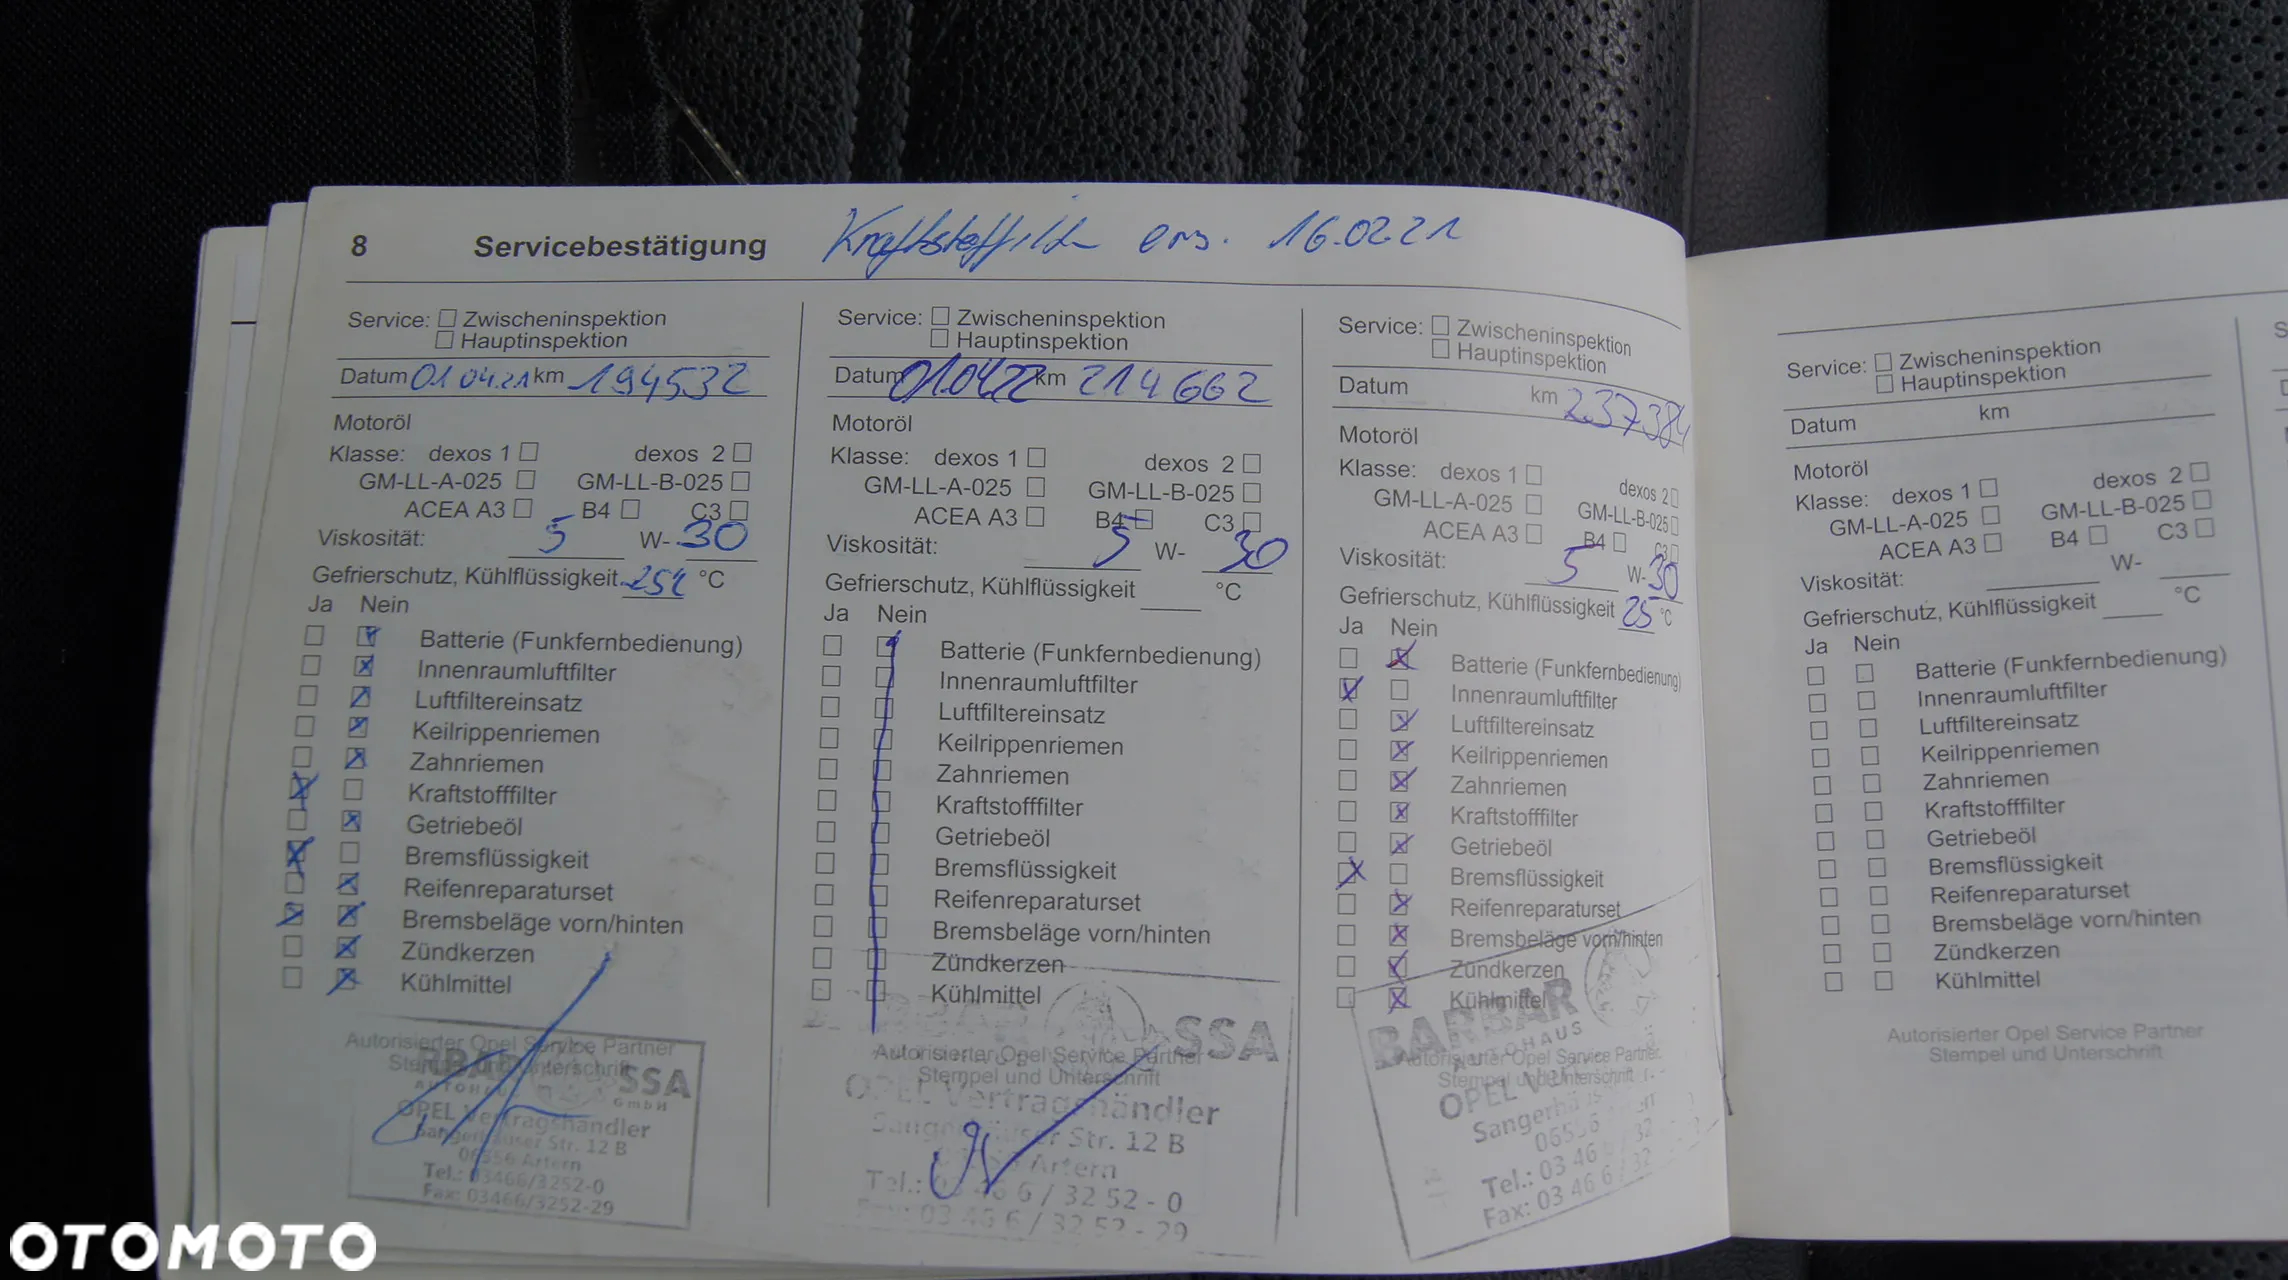 8 Servicebestätigung ers. 16.02.21
Service: Zwischeninspektion
Hauptinspektion
Datum 01 04.21 km 194532
Motoröl
Klasse: dexos 1 dexos 2
GM-LL-A-025 GM-LL-B-025
ACEA A3 B4 C3
Viskosität: 5 W- 30
Gefrierschutz, Kühlflüssigkeit °C
Ja Nein
Batterie (Funkfernbedienung)
Innenraumluftfilter
Luftfiltereinsatz
Keilrippenriemen
Zahnriemen
Kraftstofffilter
Getriebeöl
Bremsflüssigkeit
Reifenreparaturset
Bremsbeläge vorn/hinten
Zündkerzen
Kühlmittel
Autorisierter Opel Service Partner
Stempel und Unterschrift
SSA
GmbH
OPEL Vertragshändler
Sangerhäuser Str. 12 B
06556 Artern
Tel.: 03466/3252-0
Fax: 03466/3252-29
Service: Zwischeninspektion
Hauptinspektion
Datum 01.04.22 km 214662
Motoröl
Klasse: dexos 1 dexos 2
GM-LL-A-025 GM-LL-B-025
ACEA A3 B4 C3
Viskosität: 5 W- 30
Gefrierschutz, Kühlflüssigkeit °C
Ja Nein
Batterie (Funkfernbedienung)
Innenraumluftfilter
Luftfiltereinsatz
Keilrippenriemen
Zahnriemen
Kraftstofffilter
Getriebeöl
Bremsflüssigkeit
Reifenreparaturset
Bremsbeläge vorn/hinten
Zündkerzen
Kühlmittel
SSA
Autorisierter Opel Service Partner
Stempel und Unterschrift
OPEL Vertragshändler
Sangerhäuser Str. 12 B
Artern
Tel.: 03 46 6 / 32 52 - 0
Fax: 03 46 6 / 32 52 - 29
Service: Zwischeninspektion
Hauptinspektion
Datum km 237384
Motoröl
Klasse: dexos 1 dexos 2
GM-LL-A-025 GM-LL-B-025
ACEA A3 B4 C3
Viskosität: 5 W- 30
Gefrierschutz, Kühlflüssigkeit 25 °C
Ja Nein
Batterie (Funkfernbedienung)
Innenraumluftfilter
Luftfiltereinsatz
Keilrippenriemen
Zahnriemen
Kraftstofffilter
Getriebeöl
Bremsflüssigkeit
Reifenreparaturset
Bremsbeläge vorn/hinten
Zündkerzen
Kühlmittel
BARBAR
AUTOHAUS
Autorisierter Opel Service Partner
Stempel und Unterschrift
OPEL
06556
Tel.: 03 46 6 / 32
Fax: 03 46 6 / 32
Service: Zwischeninspektion
Hauptinspektion
Datum km
Motoröl
Klasse: dexos 1 dexos 2
GM-LL-A-025 GM-LL-B-025
ACEA A3 B4 C3
Viskosität: W-
Gefrierschutz, Kühlflüssigkeit °C
Ja Nein
Batterie (Funkfernbedienung)
Innenraumluftfilter
Luftfiltereinsatz
Keilrippenriemen
Zahnriemen
Kraftstofffilter
Getriebeöl
Bremsflüssigkeit
Reifenreparaturset
Bremsbeläge vorn/hinten
Zündkerzen
Kühlmittel
Autorisierter Opel Service Partner
Stempel und Unterschrift
OTOMOTO